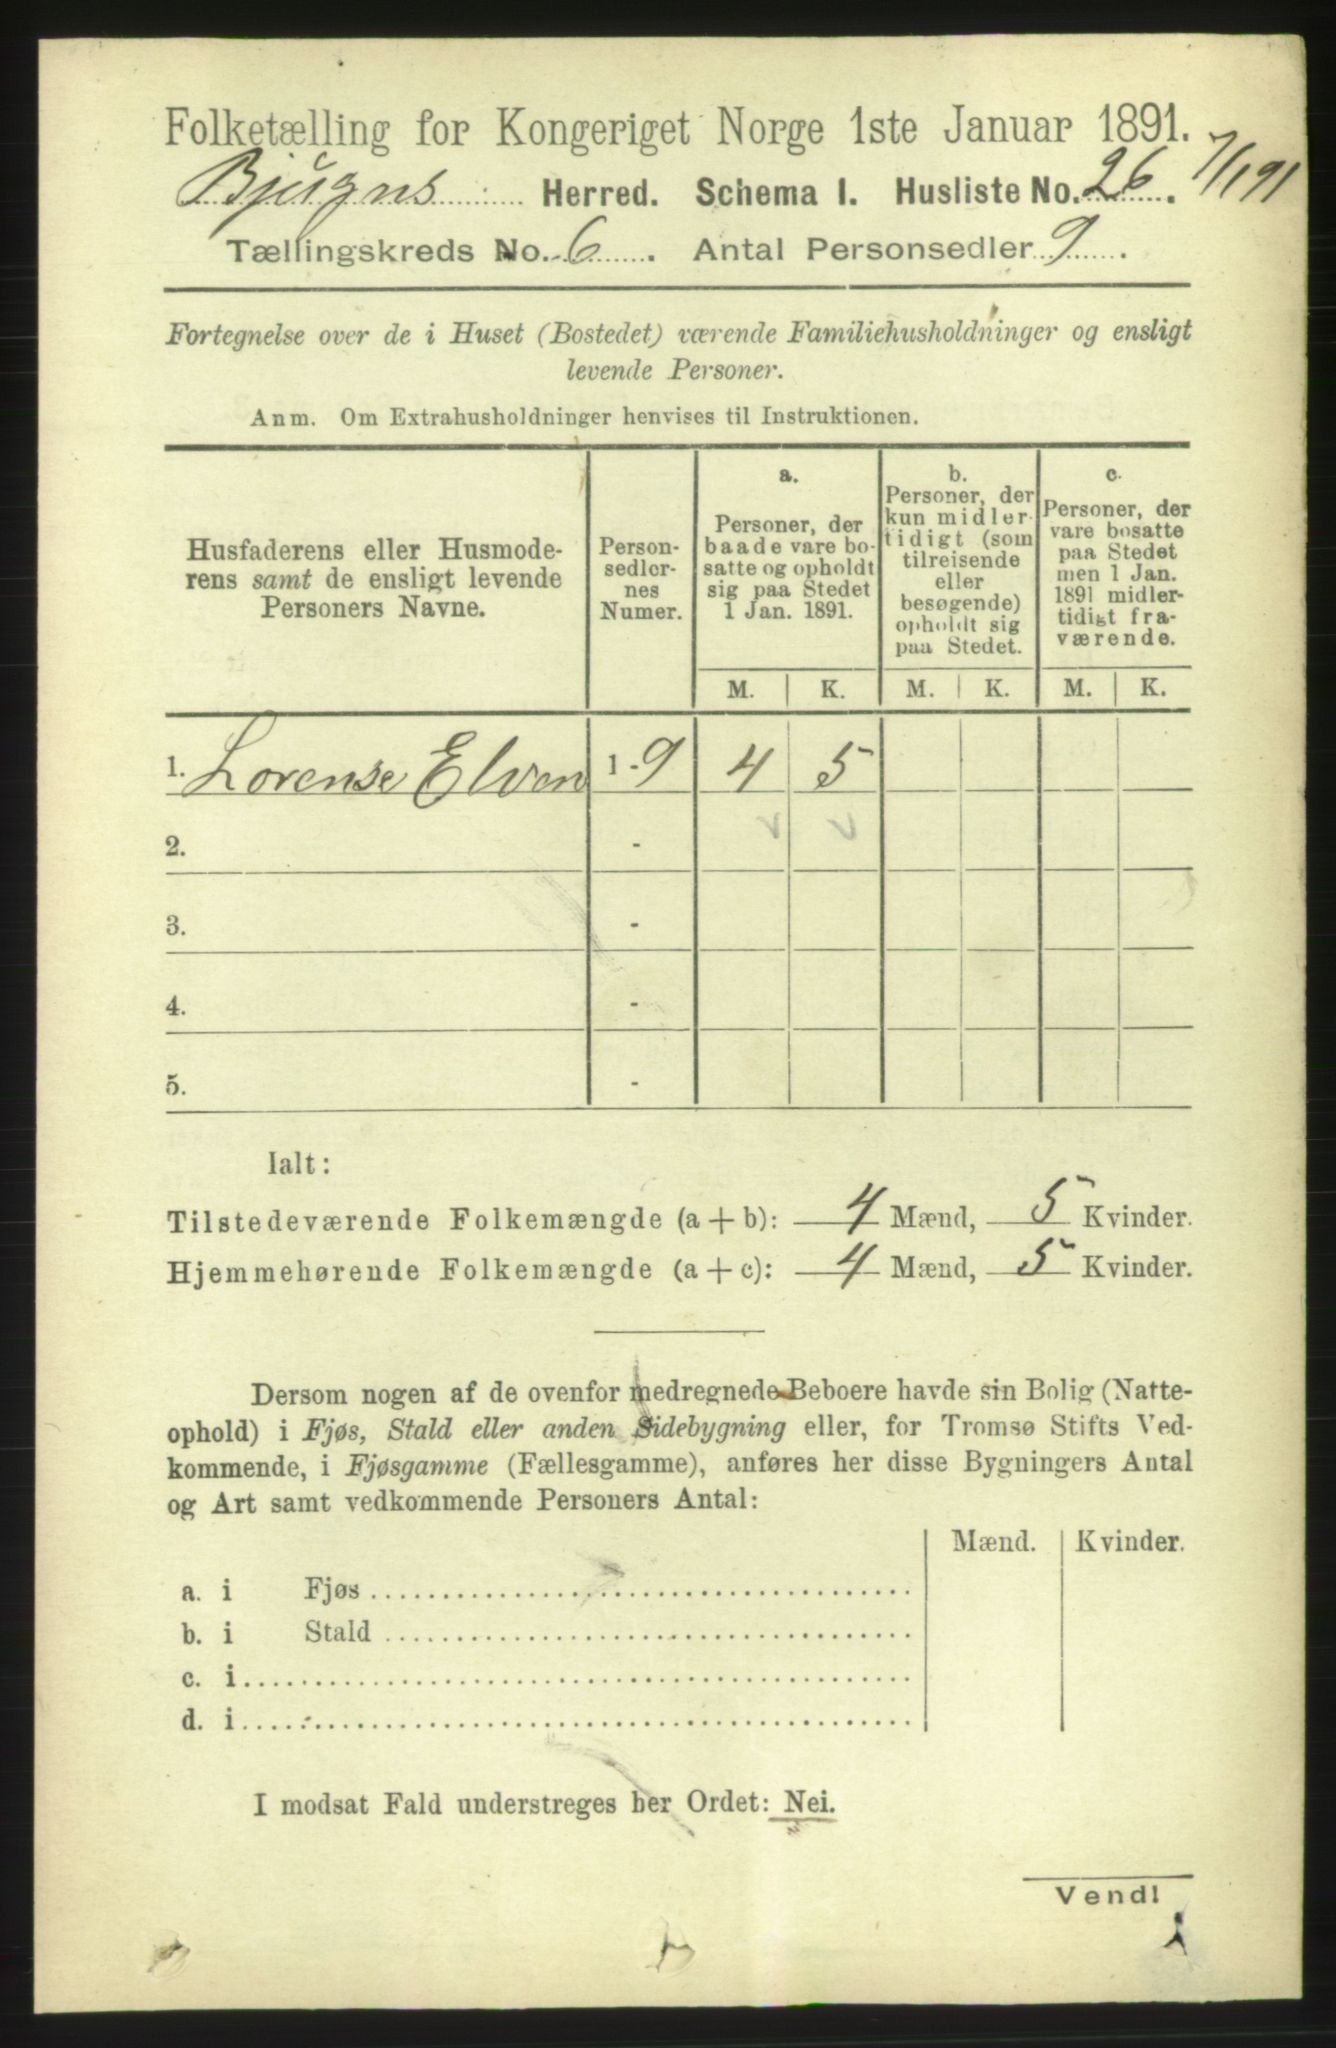 Folketælling for Kongeriget Norge 1ste Januar 1891.
Bjugns Herred. Schema I. Husliste No. 26. 7/1 91
Tællingskreds No. 6. Antal Personsedler 9.
Fortegnelse over de i Huset (Bostedet) værende Familiehusholdninger og ensligt
levende Personer.
Anm. Om Extrahusholdninger henvises til Instruktionen.
Husfaderens eller Husmode-
rens samt de ensligt levende
Personers Navne.
Person-
sedler-
nes
Numer.
a.
Personer, der
baade vare bo-
satte og opholdt
sig paa Stedet
1 Jan. 1891.
b.
Personer, der
kun midler-
tidigt (som
tilreisende
eller
besøgende)
opholdt sig
paa Stedet.
c.
Personer, der
vare bosatte
paa Stedet
men 1 Jan.
1891 midler-
tidigt fra-
værende.
M. K. M. K. M. K.
1. Lorense Elven 1-9 4 5
2. -
3. -
4. -
5. -
Ialt:
Tilstedeværende Folkemængde (a + b): 4 Mænd, 5 Kvinder.
Hjemmehørende Folkemængde (a + c): 4 Mænd, 5 Kvinder.
Dersom nogen af de ovenfor medregnede Beboere havde sin Bolig (Natte-
ophold) i Fjøs, Stald eller anden Sidebygning eller, for Tromsø Stifts Ved-
kommende, i Fjøsgamme (Fællesgamme), anføres her disse Bygningers Antal
og Art samt vedkommende Personers Antal:
Mænd. Kvinder.
a. i Fjøs
b. i Stald
c. i
d. i
I modsat Fald understreges her Ordet: Nei.
Vend!